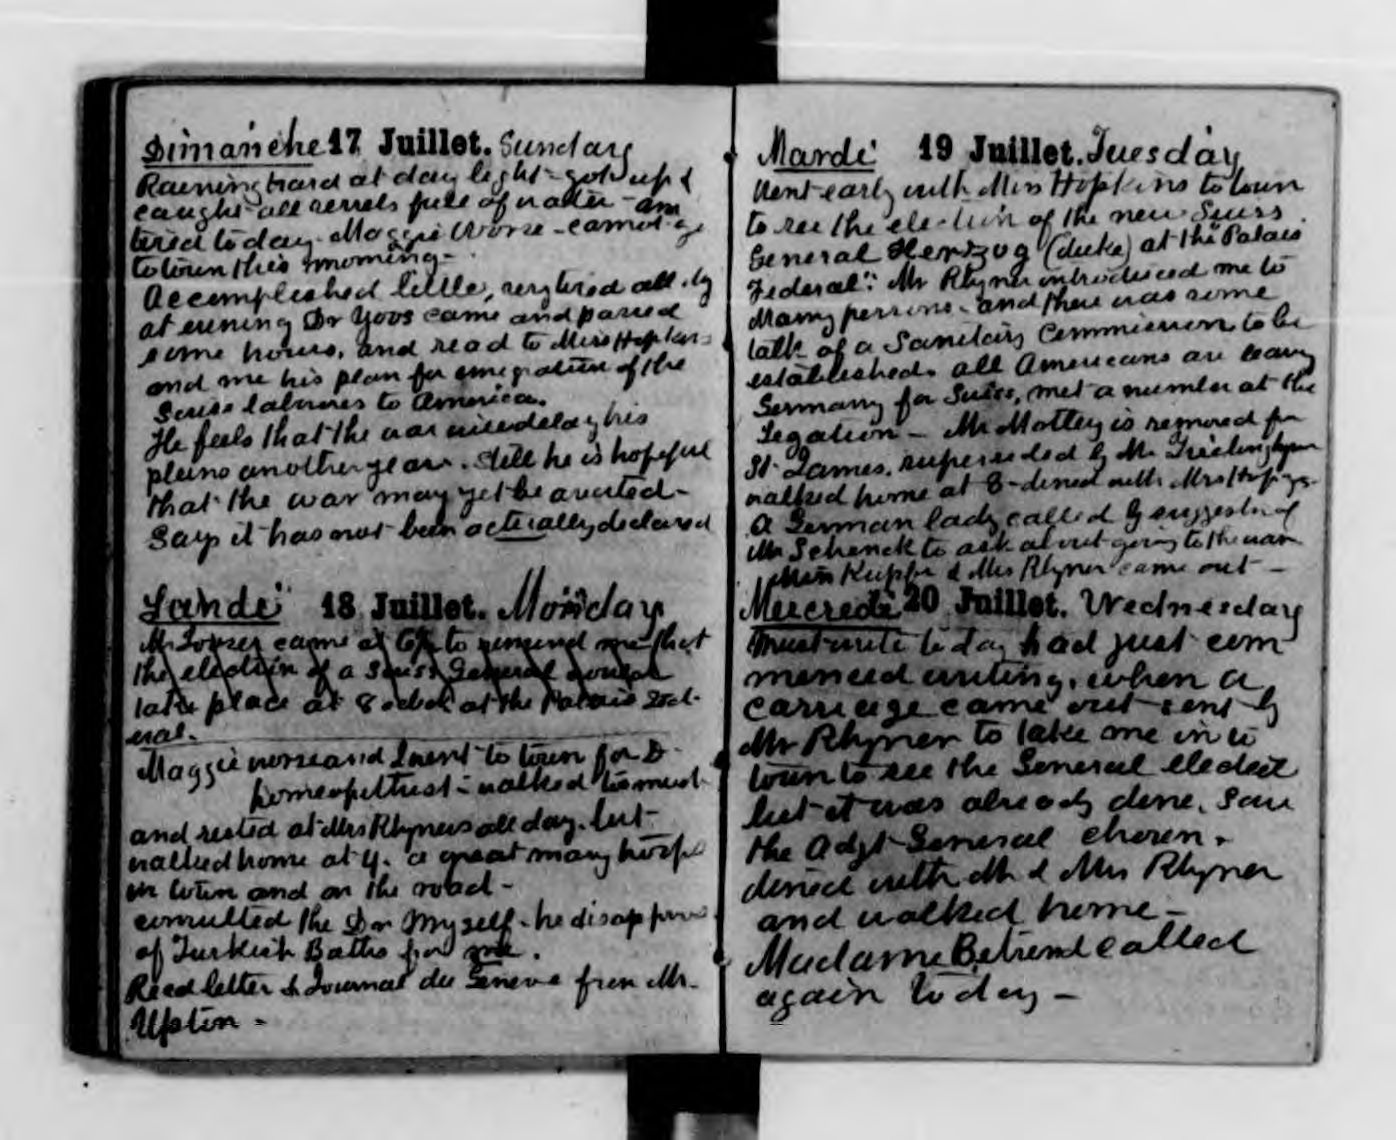 Dimanche 17 Juillet. Sunday
Raining hard at day light - got up &
caught all vessels full of water - am
tired to day. Maggie Worse - cannot go
to town this morning -
Accomplished little, very tired all day
at evening Dr Yoos came and passed
some hours, and read to Miss Hopkins
and me his plan for emigration of the
Suiss laborers to America.
He feels that the war will delay his
plans another year. Still he is hopeful
that the war may yet be averted -
Says it has not been actually declared
Lundi 18 Juillet. Monday
Mr came at to remind me that
the election of a Suiss General would
take place at 8 oclock at the Palais Fed-
eral.
Maggie worse and I went to town for D
homeopathist - walked to must
and rested at Mrs Rhyners all day. but
walked home at 4. a great many troops
in town and on the road -
consulted the Dr Myself - he disapproves
of Turkish Baths for me.
Recd letter & Journal de Geneve from Mr.
Upton -
Mardi 19 Juillet. Tuesday
Went early with Miss Hopkins to town
to see the election of the new Suiss
General Hertzog (duke) at the "Palais
Federal": Mr Rhyner introduced me to
Many persons - and there was some
talk of a Sanitary Commission to be
established. all Americans are leaving
Germany for Suiss, met a number at the
Legation - Mr Mottley is removed from
St. James. superseded by Mr.
walked home at 8 - dined with Mrs
A German lady called by suggestion of
Mr Schenck to ask about going to the war
Miss Kupfer & Mrs Rhyner came out -
Mercredi 20 Juillet. Wednesday
Must write to day had just com
menced writing, when a
carriage came out sent by
Mr Rhyner to take me in to
town to see the General elected
but it was already done. Saw
the Adjt General chosen.
dined with Mr & Mrs Rhyner
and walked home -
Madame called
again to day -